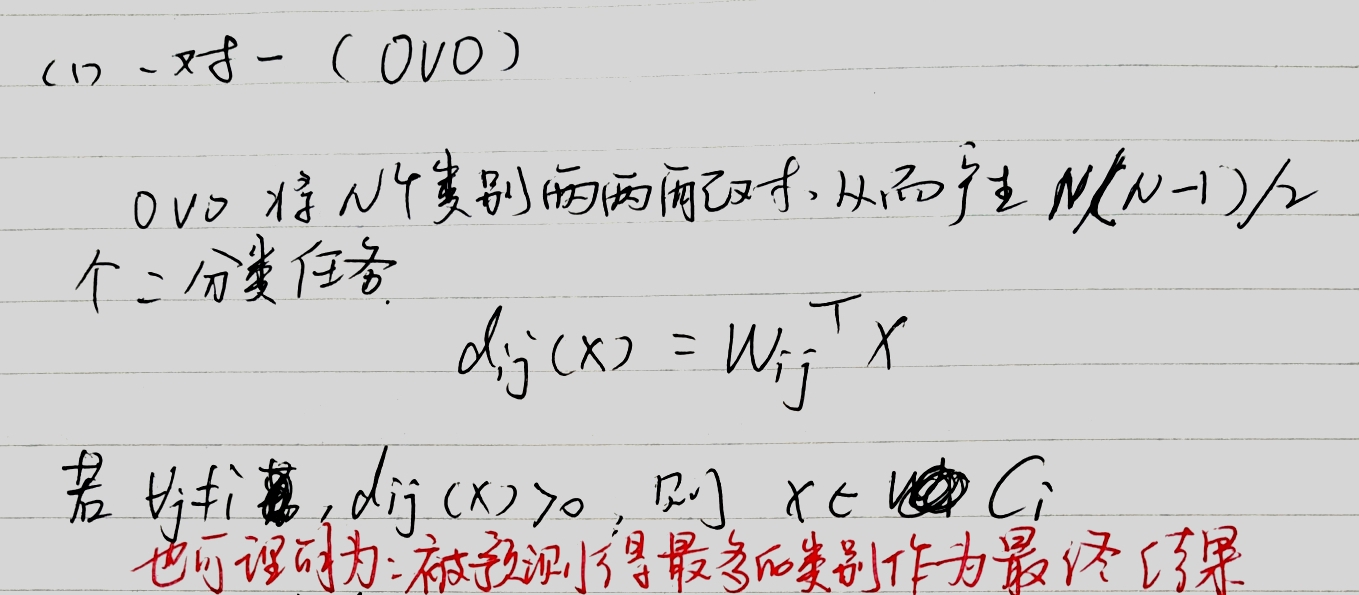 (1) 一对一 (OVO)
OVO 将 N个类别两两配对, 从而产生 N(N-1)/2
个二分类任务.
dij(x) = Wij^T x
若 ∀j≠i, dij(x)>0, 则 x∈ Ci
也可理解为:被预测得最多的类别作为最终结果